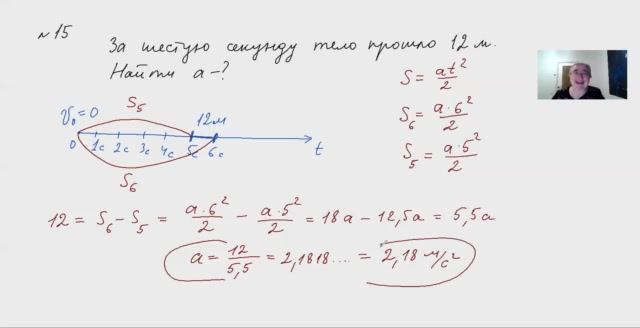 №15
За шестую секунду тело прошло 12 м.
Найти a-?
S = at²/2
S₆ = a·6²/2
S₅ = a·5²/2
V₀ = 0
S₅
12м
0 1с 2с 3с 4с 5с 6с t
S₆
12 = S₆ - S₅ = a·6²/2 - a·5²/2 = 18a - 12,5a = 5,5a
a = 12/5,5 = 2,1818.... = 2,18 м/с²